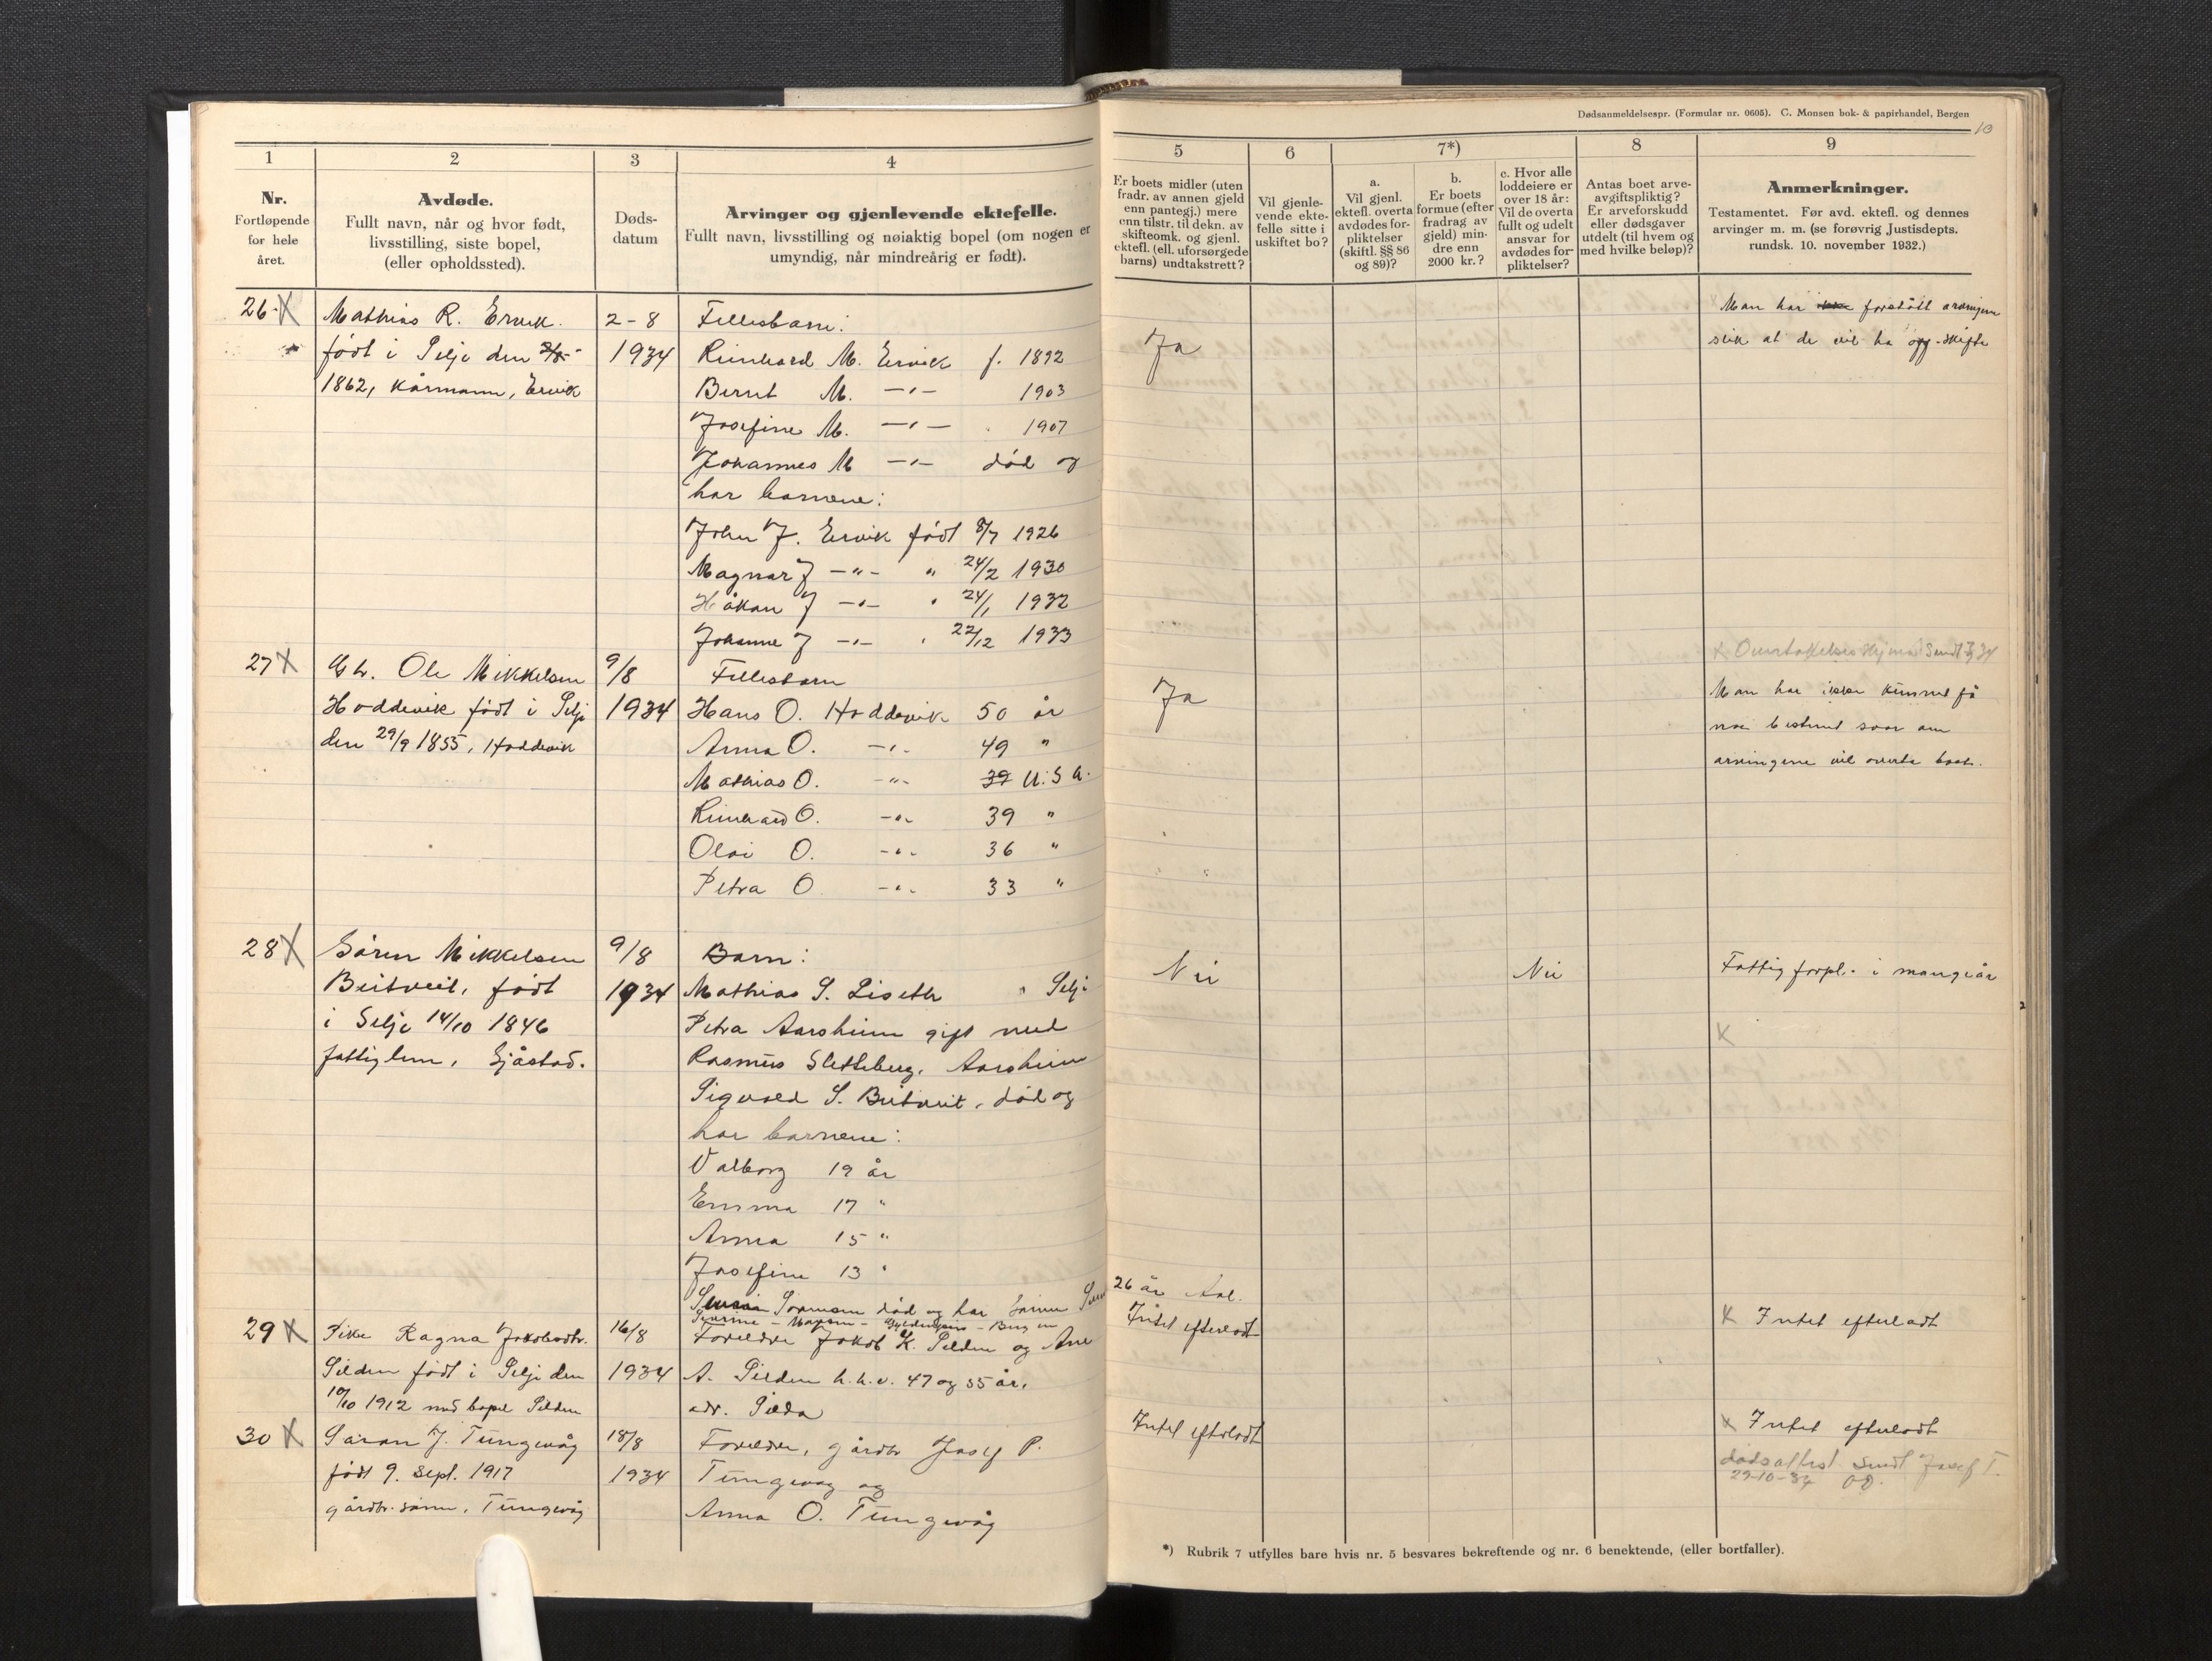 Dødsanmeldelsespr. (Formular nr. 0605). C. Monsen bok- & papirhandel, Bergen
10
1
2
3
4
5
6
7*)
8
9
Nr.
Fortløpende
for hele
året.
Avdøde.
Fullt navn, når og hvor født,
livsstilling, siste bopel,
(eller opholdssted).
Døds-
datum
Arvinger og gjenlevende ektefelle.
Fullt navn, livsstilling og nøiaktig bopel (om nogen er
umyndig, når mindreårig er født).
Er boets midler (uten
fradr. av annen gjeld
enn pantegj.) mere
enn tilstr. til dekn. av
skifteomk. og gjenl.
ektefl. (ell. uforsørgede
barns) undtakstrett?
Vil gjenle-
vende ekte-
felle sitte i
uskiftet bo?
a.
Vil gjenl.
ektefl. overta
avdødes for-
pliktelser
(skiftl. §§ 86
og 89)?
b.
Er boets
formue (efter
fradrag av
gjeld) min-
dre enn
2000 kr.?
c. Hvor alle
loddeiere er
over 18 år:
Vil de overta
fullt og udelt
ansvar for
avdødes for-
pliktelser?
Antas boet arve-
avgiftspliktig?
Er arveforskudd
eller dødsgaver
utdelt (til hvem og
med hvilke beløp)?
Anmerkninger.
Testamentet. Før avd. ektefl. og dennes
arvinger m. m. (se forøvrig Justisdepts.
rundsk. 10. november 1932.)
26. X
Mathias R. Ervik.
født i Selje den
1862, kårmann, Ervik
2-8
1934
Fellesbarn:
Reinhard M. Ervik f. 1892
Bernt M. -"- 1903
Josefine M. -"- 1907
Johannes M -"- død og
har barnene:
John J. Ervik født 8/7 1926
Magnar J -"- " 24/2 1930
Håkon J -"- " 24/1 1932
Johanne J -"- " 22/12 1933
Ja
Man har forstått arvingene
slik at de vil ha off. skifte
27 X
Ole Mikkelsen
Hoddevik født i Selje
den 29/9 1855, Hoddevik
9/8
1934
Fellesbarn
Hans O. Hoddevik 50 år
Anna O. -"- 49 "
Mathias O. -"- 39 U.S.A.
Reinhard O. -"- 39 "
Olai O. -"- 36 "
Petra O. -"- 33 "
Ja
X Overtakelses sendt
Man har ikke kunnet få
noe bestemt svar om
arvingene vil overta boet.
28 X
Søren Mikkelsen
Beitveit, født
i Selje 14/10 1846
fattiglem, Sjåstad.
9/8
1934
Barn:
Mathias S. Liseth " Selje
Petra Aarsheim gift med
Rasmus Sletteberg, Aarsheim
Sigvald S. Beitveit, død og
har barnene:
Valborg 19 år
Emma 17 "
Anna 15 "
Josefine 13 "
Sørensen død og har
26 år
Nei
Nei
Fattigforpl. i mange år
X
29 X
Pike Ragna Jakobsdtr.
Silden født i Selje den
10/10 1912 med bopel Silden
16/8
1934
Foreldre Jakob K. Silden og Ane
A. Silden h.h.v. 47 og 55 år.
adr. Silda
Intet efterladt
X Intet efterladt
30 X
Søran J. Tungevåg
født 9. sept. 1917
gårdbr. sønn, Tungevåg
18/8
1934
Foreldre, gårdbr Josef P.
Tungevåg og
Anna O. Tungevåg
Intet efterladt
X Intet efterladt
dødsattest sendt Josef T.
29-10-34 OD.
*) Rubrik 7 utfylles bare hvis nr. 5 besvares bekreftende og nr. 6 benektende, (eller bortfaller).